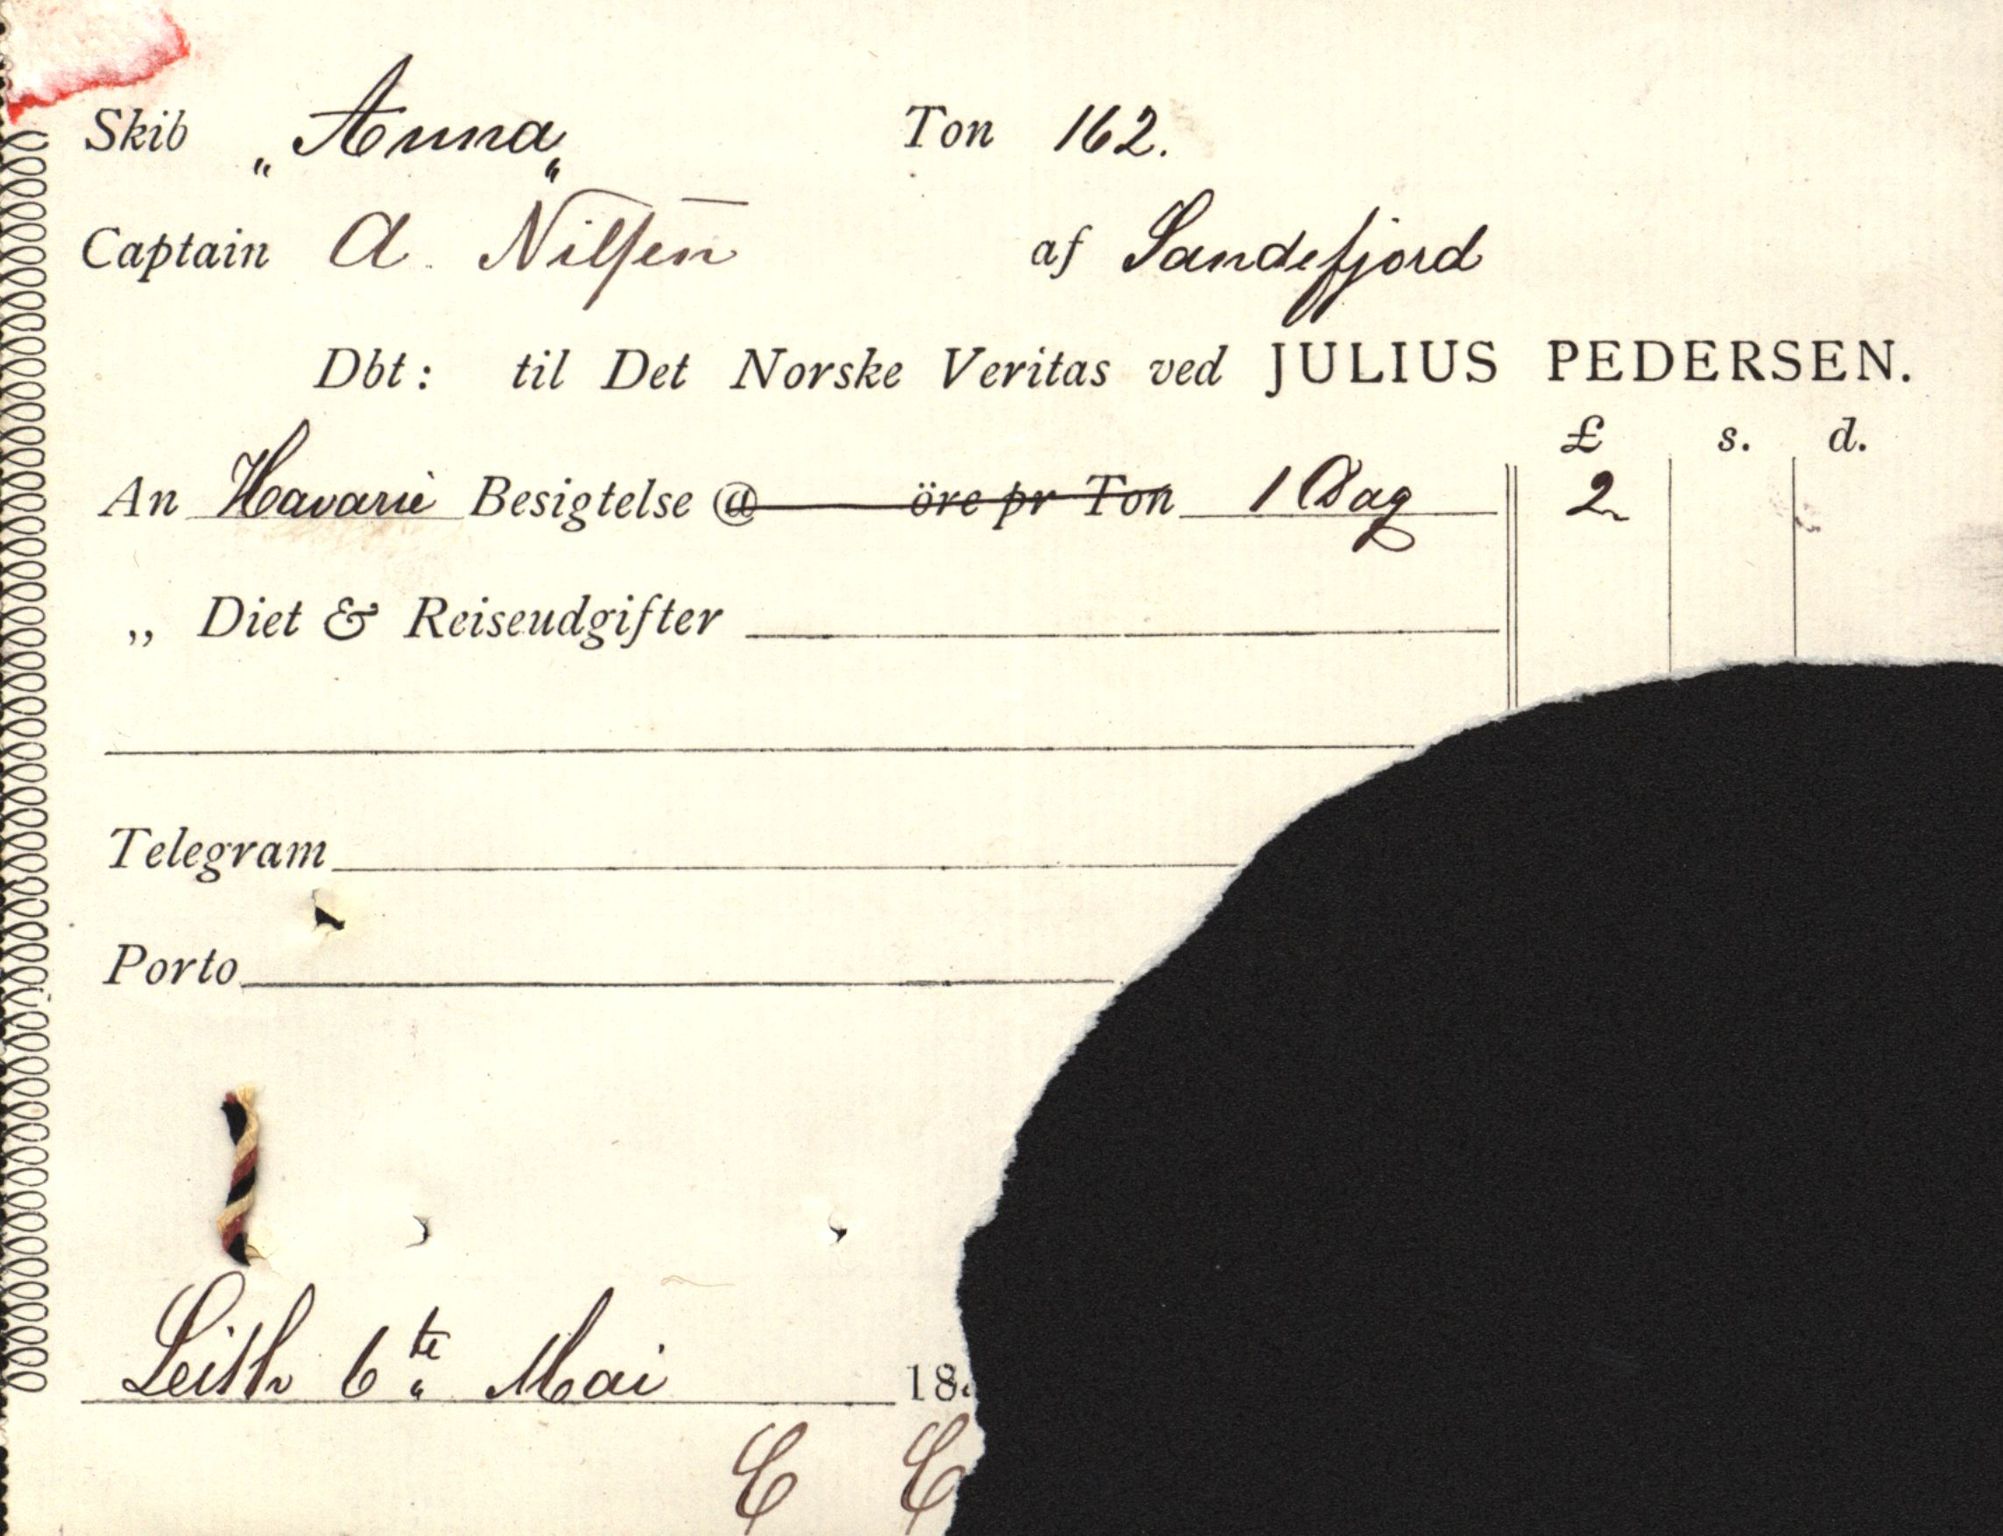 Skib „Anna„ Ton 162.
Captain A. Nilsen af Sandefjord
Dbt: til Det Norske Veritas ved JULIUS PEDERSEN.
£ s. d.
An Havarie Besigtelse @ öre pr Ton 1 Dag 2
„ Diet & Reiseudgifter
Telegram
Porto
Leith 6te Mai 18
C C